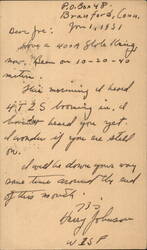 P.O. Box 48.
Branford, Conn.
Jan 1, 1931
Dear Joe:
have a 400A Globe Wking
now. Been on 10-20-40
meters.
This morning I heard
4T2S booming in. I
heard you yet.
I wonder if you are still
on.
I will be down your way
some time around the end
of this month.
73's
Harry Johnson